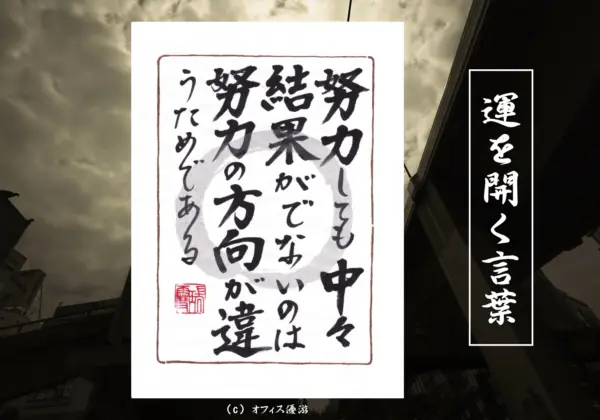 運を開く言葉
努力しても中々
結果がでないのは
努力の方向が違
うためである
(c) オフィス優游